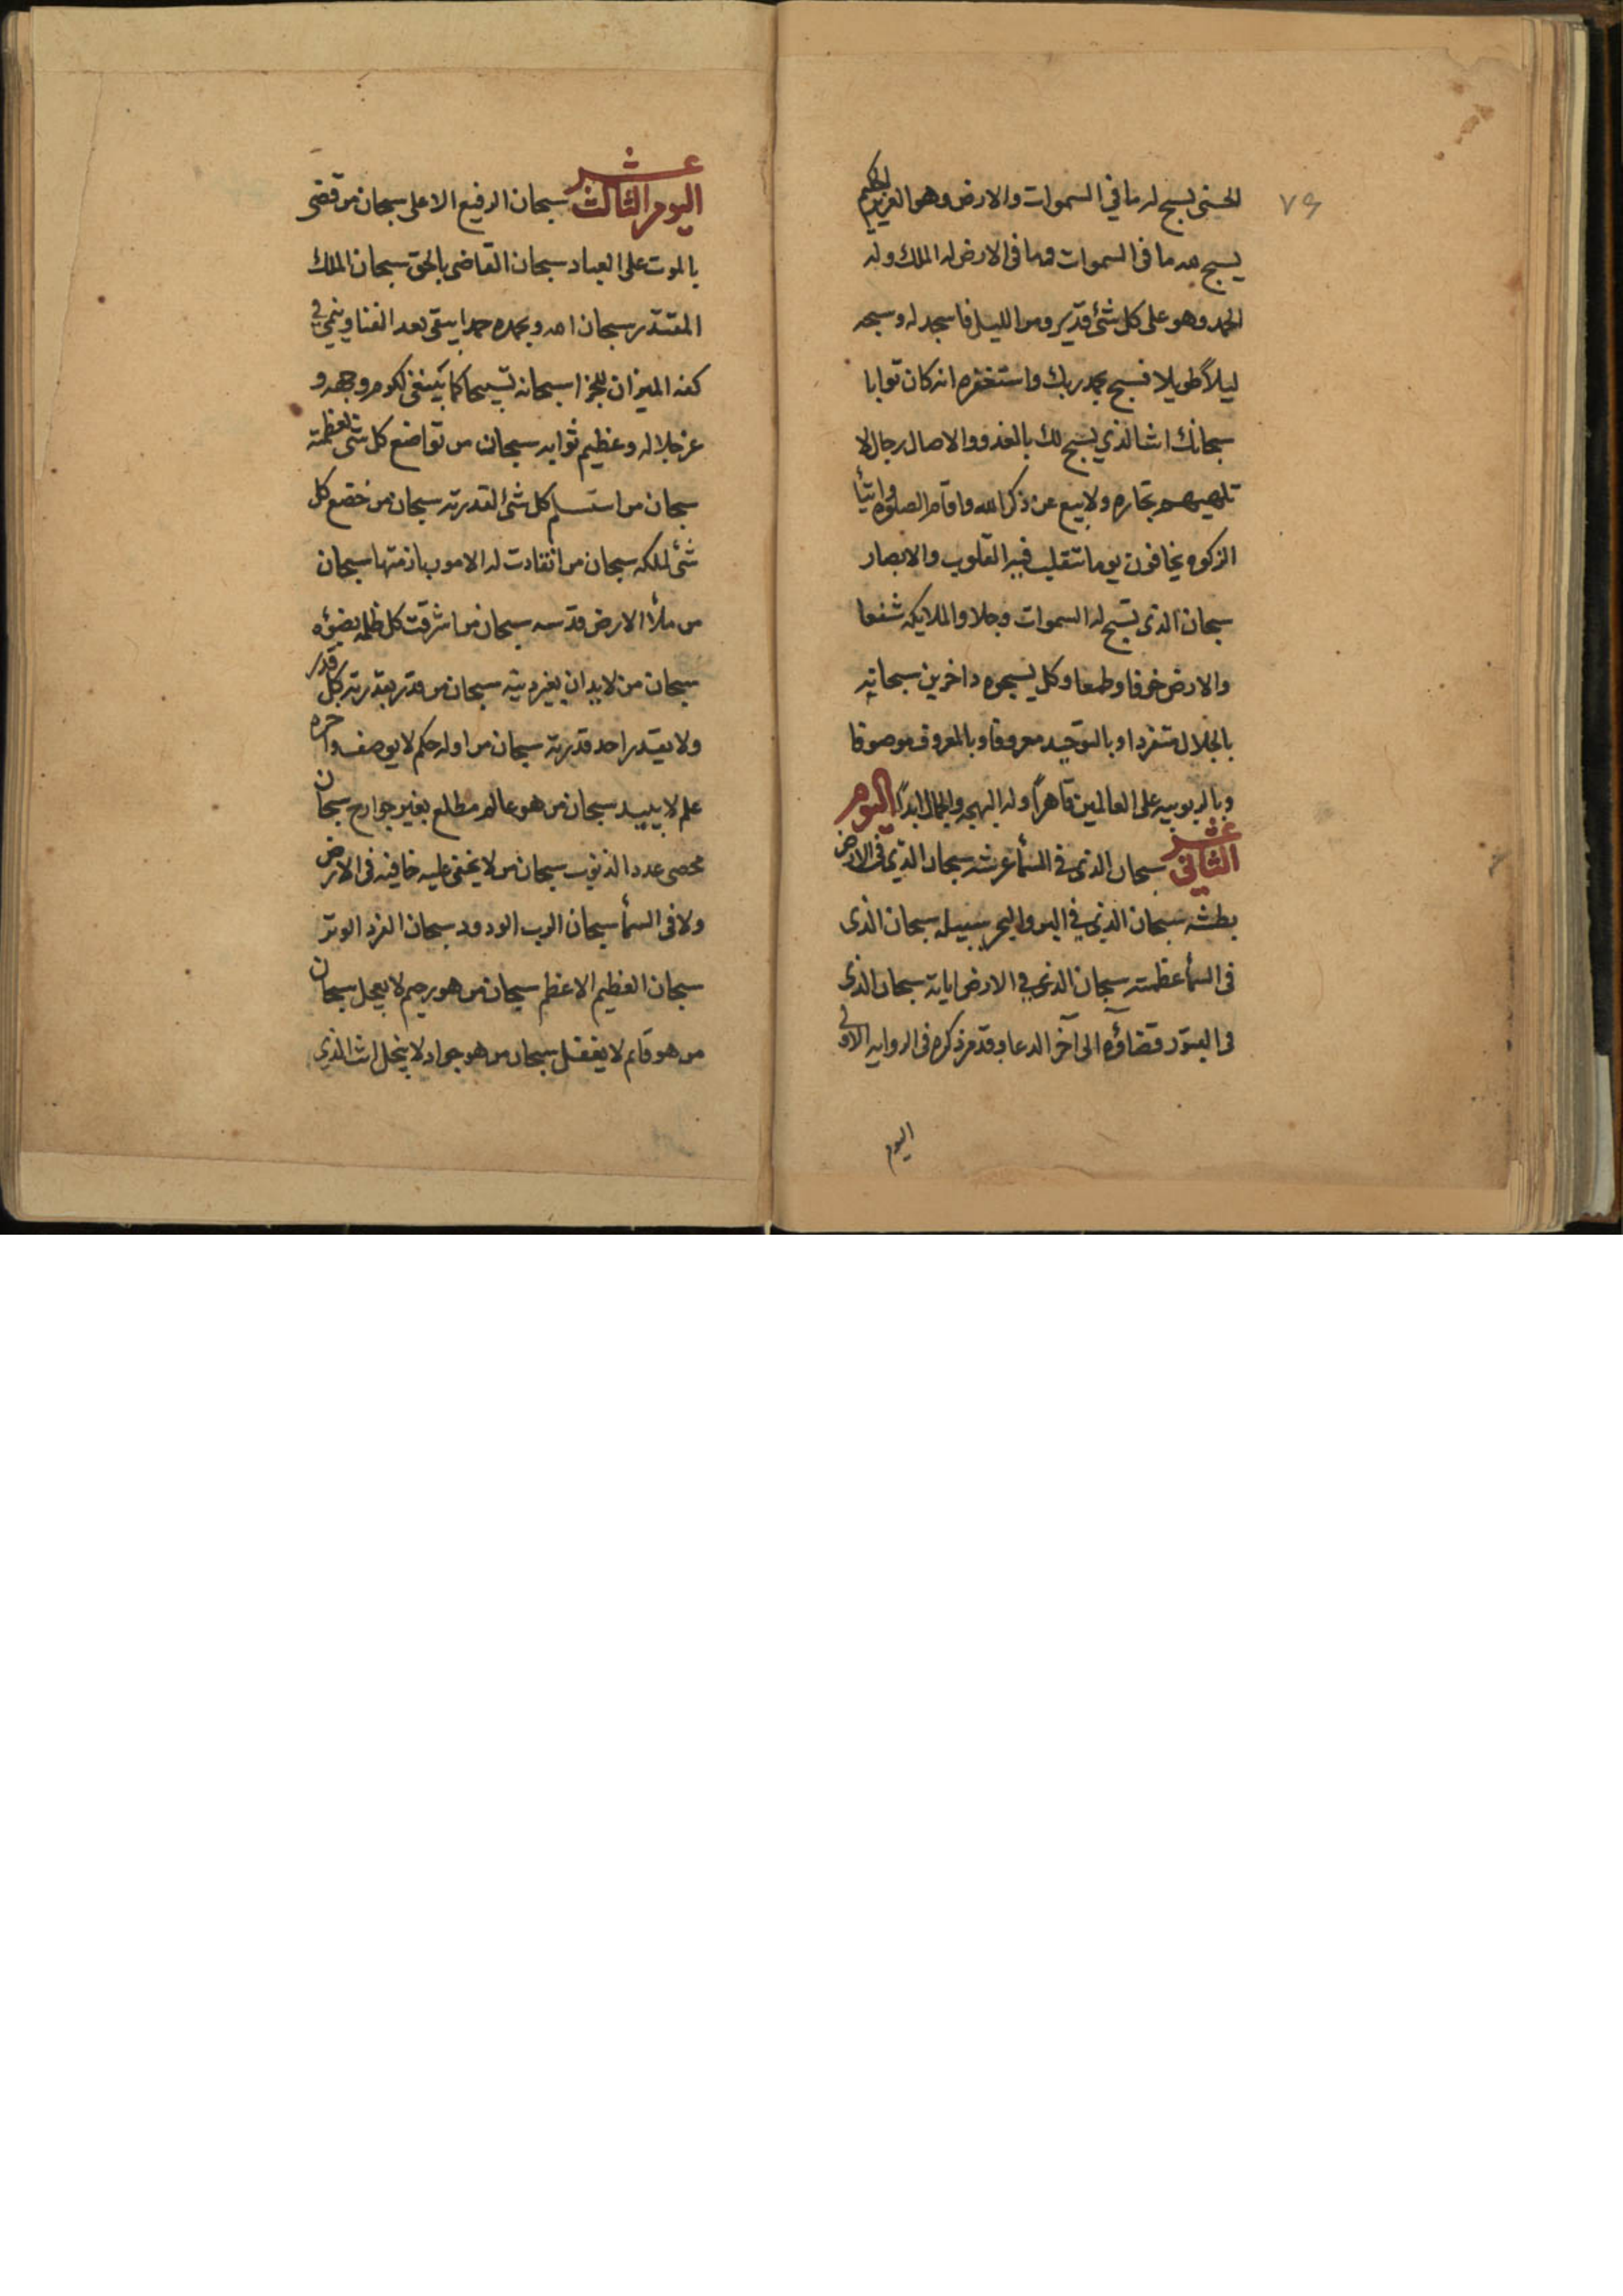 ٧٩
الحسنى يسبح له ما في السموات والارض وهو العزيز الحكيم
يسبح لله ما فى السموات وما فى الارض له الملك وله
الحمد وهو على كل شئ قدير ومن الليل فاسجد له وسبحه
ليلاً طويلا فسبح بحمد ربك واستغفره انه كان توابا
سبحانك انت الذي يسبح لك بالغدو والاصال رجال لا
تلهيهم تجاره ولا بيع عن ذكر الله واقام الصلوه وايتأ
الزكوه يخافون يوما تتقلب فيه القلوب والابصار
سبحان الذى تسبح له السموات وجلا والملايكه شفعا
والارض خوفا وطمعا وكل يسبحوه داخرين سبحانه
بالجلال متفردا وبالتوحيد معروفا وبالمعروف موصوفا
وبالربوبيه على العالمين قاهراً وله البهجه والجمال ابداً اليوم
الثانى عشر سبحان الذى فى السمأ عرشه سبحان الذي فى الارض
بطشه سبحان الذي فى البر والبحر سبيله سبحان الذى
فى السمأ عظمته سبحان الذى فى الارض اياته سبحان الذى
فى القبور قضاؤه الى آخر الدعا وقد مر ذكره فى الروايه الاولى
اليوم
اليوم الثالث عشر سبحان الرفيع الاعلى سبحان من قضى
بالموت على العباد سبحان القاضى بالحق سبحان الملك
المقتدر سبحان الله وبحمده حمدا يبقى بعد الفنا وينمي فى
كفه الميزان للجزا سبحانه تسبيحا كما ينبغى لكرم وجهه و
عز جلاله وعظيم ثوابه سبحان من تواضع كل شى لعظمته
سبحان من استسلم كل شئ لقدرته سبحان من خضع كل
شئ لملكه سبحان من انقادت له الامور بازمتها سبحان
من ملأ الارض قدسه سبحان من اشرقت كل ظلمه بضوئه
سبحان من لا يدان بغير دينه سبحان من قدر بقدرته كل قدر
ولا يقدر احد قدرته سبحان من اوله حكم لا يوصف واخره
علم لا يبيد سبحان من هو عالم مطلع بغير جوارح سبحان
محصى عدد الذنوب سبحان من لا يخفى عليه خافيه فى الارض
ولا فى السمأ سبحان الرب الودود سبحان الفرد الوتر
سبحان العظيم الاعظم سبحان من هو رحيم لا يعجل سبحان
من هو قايم لا يغفل سبحان من هو جواد لا يبخل انت الذي